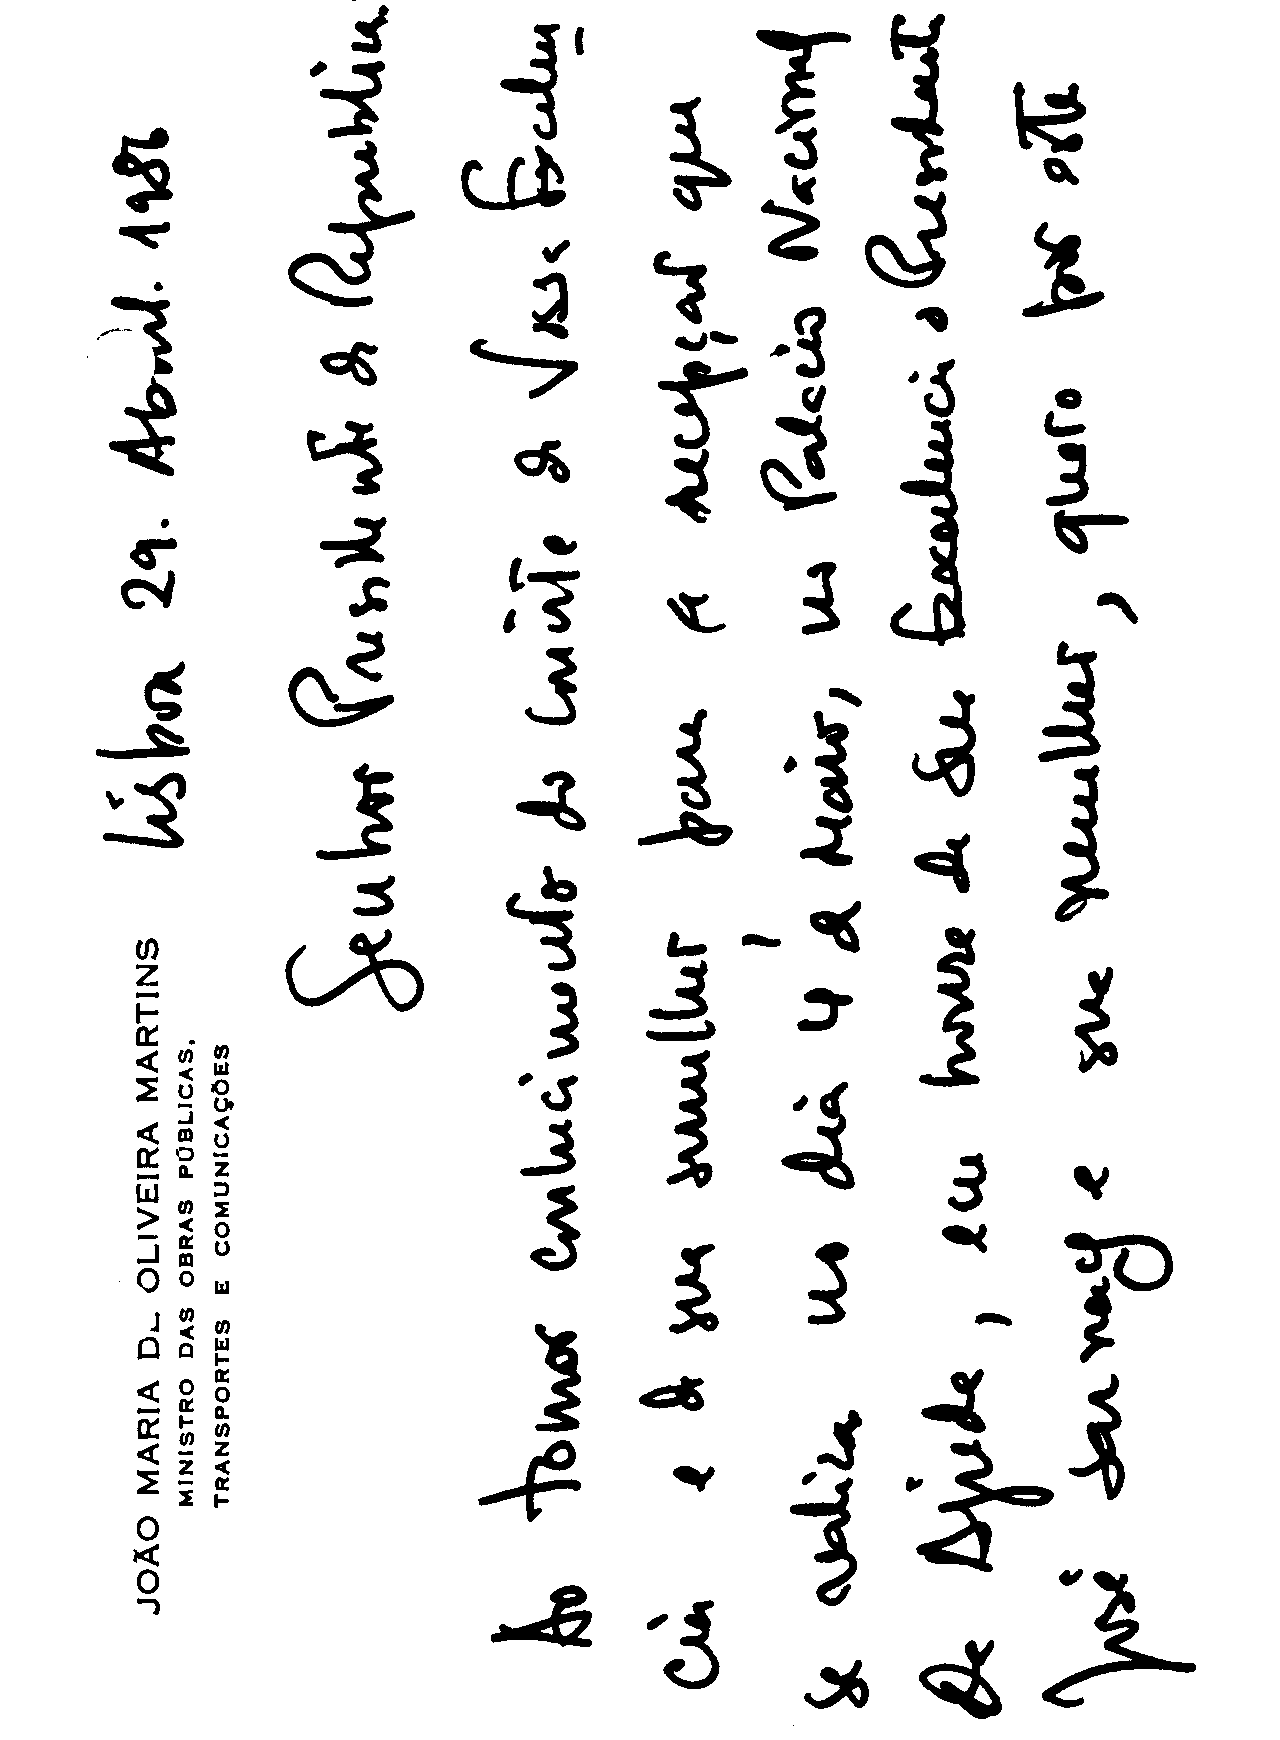 JOÃO MARIA DE OLIVEIRA MARTINS
MINISTRO DAS OBRAS PÚBLICAS,
TRANSPORTES E COMUNICAÇÕES
Lisboa 29. Abril. 1986
Senhor Presidente da República.
Ao tomar conhecimento do convite de Vossa Excelen
cia e de sua mulher para a recepção que
se realiza no dia 4 de Maio, no Palácio Nacional
da Ajuda, em honra de Sua Excelencia o Presidente
José Sarney e sua mulher, quero por este